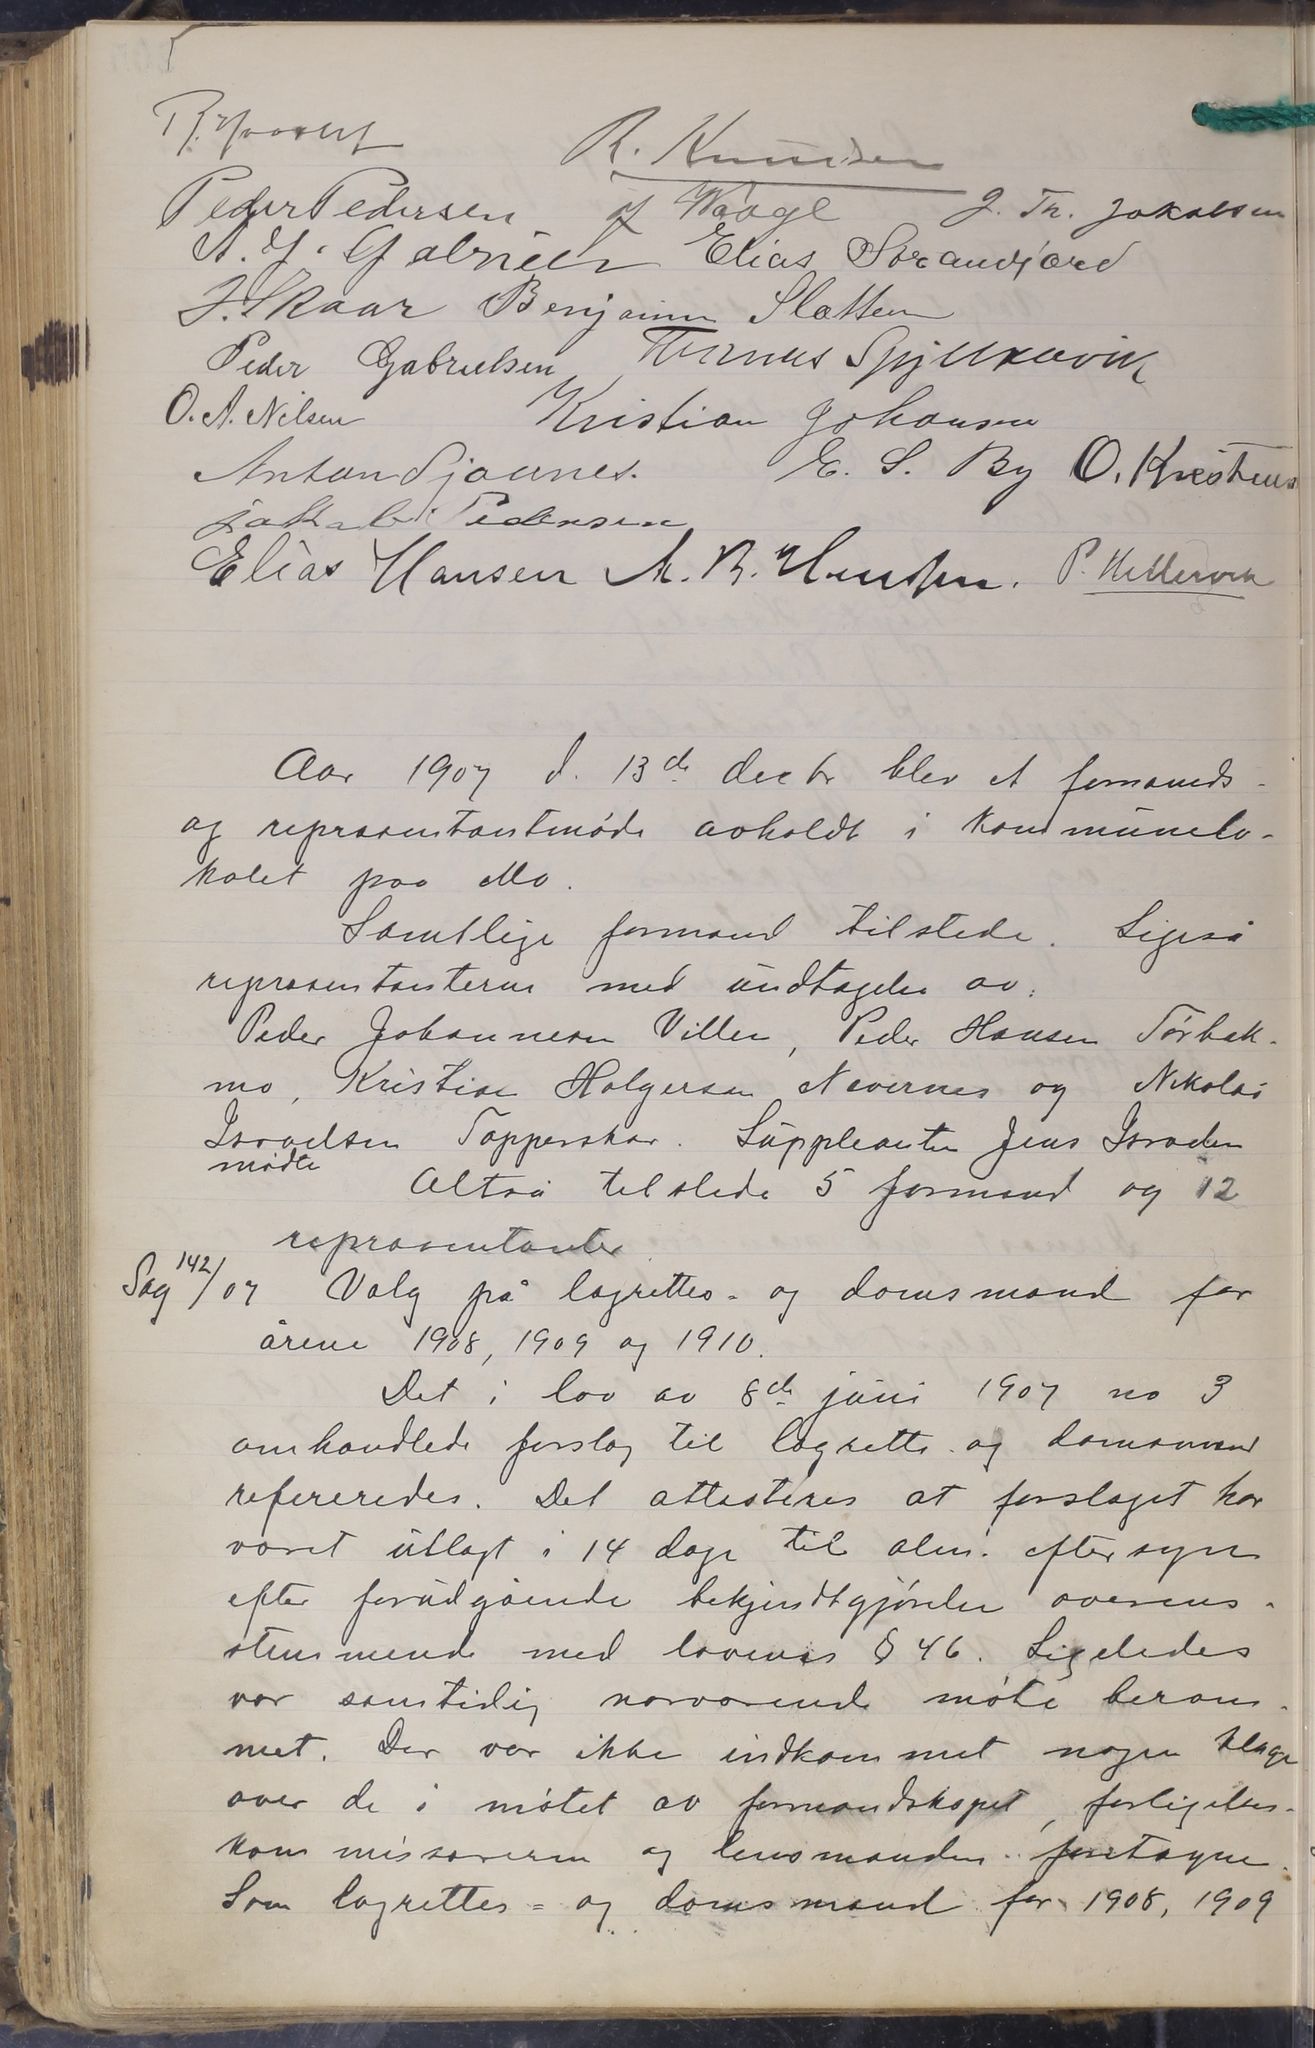 R. Knudsen
Peder Pedersen Waage J. Th. Jakobsen
Elias Strandjord
J. Skaar Benjamin Slotten
Peder Gabrielsen
O. A. Nilsen Kristian Johansen
Anton Sjaanes. E. S. By O. Kristens
Jakob Pedersen
Elias Hansen A. B.
Aar 1907 d. 13de decbr blev et formands-
og repræsentantmøde avholdt i kommunelo-
kalet paa Mo.
Samtlige formænd tilstede. Ligeså
repræsentanterne med undtagelse av:
Peder Johannesen Villen, Peder Hansen Tørbek-
mo, Kristian Holgersen Nevernes og Nikolai
Israelsen Tapperskar. Suppleanten Jens Israelsen
mødte
Altså tilstede 5 formænd og 12
repræsentanter.
Sag 142/07 Valg på lagrettes- og domsmænd for
årene 1908, 1909 og 1910.
Det i lov av 8de juni 1907 no 3
omhandlede forslag til lagrette- og domsmænd
refereredes. Det attesteres at forslaget har
været utlagt i 14 dage til alm. eftersyn
efter forudgående bekjendtgjørelse overens-
stemmende med lovens § 46. Ligeledes
var samtidig nærværende møte beram-
met. Der var ikke indkommet nogen klage
over de i møtet av formandskapet, forligelses-
kommissærerne og lensmanden foretagne.
Som lagrettes- og domsmænd for 1908, 1909